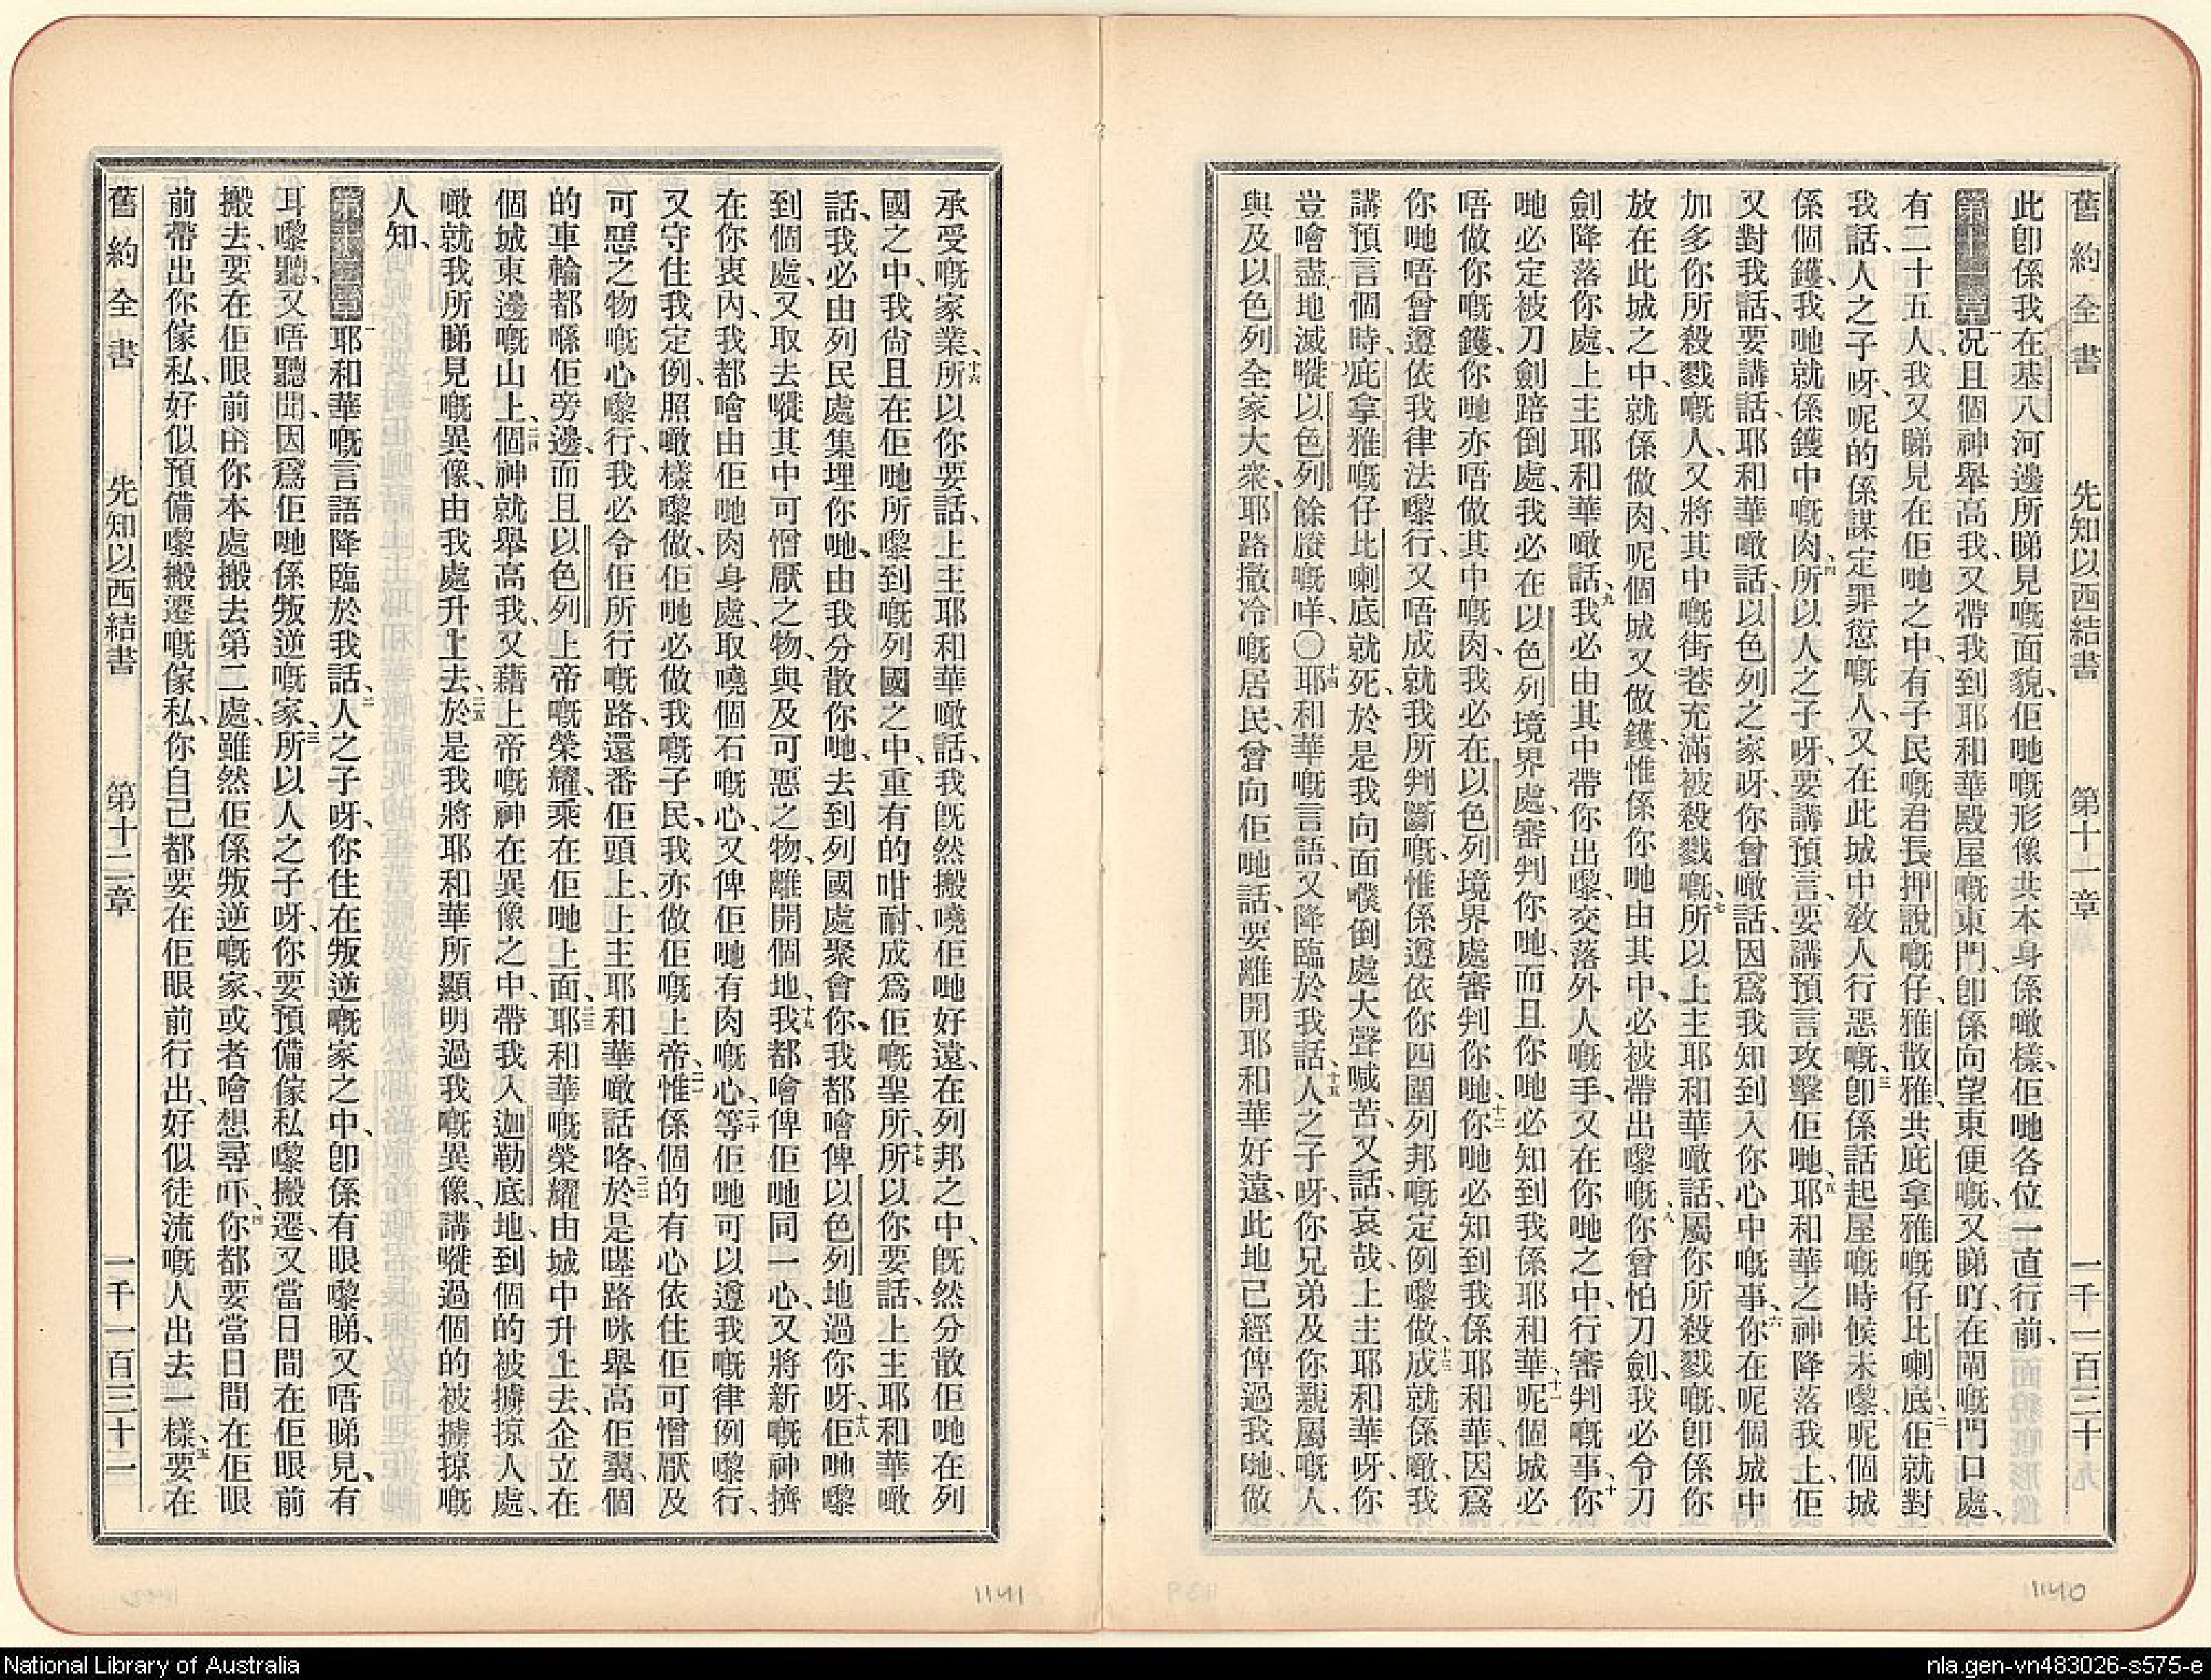 舊約全書 先知以西結書 第十一章 一千一百三十
此卽係我在基八河邊所睇見嘅面貌、佢哋嘅形像共本身係噉樣、佢哋各位一直行前、
第十一章 一况且個神舉高我、又帶我到耶和華殿屋嘅東門、卽係向望東便嘅、又睇吖、在閘嘅門口處、
有二十五人、我又睇見在佢哋之中、有子民嘅君長押說嘅仔、雅散雅、共庇拿雅嘅仔比喇底、二佢就對
我話、人之子呀、呢的係謀定罪愆嘅人、又在此城中敎人行惡嘅、三卽係話起屋嘅時候未嚟、呢個城
係個鑊、我哋就係鑊中嘅肉、四所以人之子呀、要講預言、要講預言攻擊佢哋、五耶和華之神降落我上、佢
又對我話、要講話、耶和華噉話、以色列之家呀、你曾噉話、因爲我知到入你心中嘅事、六你在呢個城中
加多你所殺戮嘅人、又將其中嘅街巷充滿被殺戮嘅、七所以上主耶和華噉話、屬你所殺戮嘅、卽係你
放在此城之中、就係做肉、呢個城又做鑊、惟係你哋由其中、必被帶出嚟嘅、八你曾怕刀劍、我必令刀
劍降落你處、上主耶和華噉話、九我必由其中帶你出嚟、交落外人嘅手、又在你哋之中、行審判嘅事、十你
哋必定被刀劍踣倒處、我必在以色列境界處、審判你哋、而且你哋必知到我係耶和華、十一呢個城必
唔做你嘅鑊、你哋亦唔做其中嘅肉、我必在以色列境界處審判你哋、十二你哋必知到我係耶和華、因爲
你哋唔曾遵依我律法嚟行、又唔成就我所判斷嘅、惟係遵依你四圍列邦嘅定例嚟做、十三成就係噉、我
講預言個時、庇拿雅嘅仔比喇底就死、於是我向面噗倒處大聲喊苦、又話、哀哉、上主耶和華呀、你
豈噲盡地滅嘥以色列餘賸嘅咩、〇十四耶和華嘅言語、又降臨於我話、十五人之子呀、你兄弟及你親屬嘅人、
與及以色列全家大衆、耶路撒冷嘅居民、曾向佢哋話、要離開耶和華好遠、此地已經俾過我哋、做
承受嘅家業、十六所以你要話、上主耶和華噉話、我旣然搬嘵佢哋好遠、在列邦之中、旣然分散佢哋在列
國之中、我尙且在佢哋所嚟到嘅列國之中、重有的咁耐、成爲佢嘅聖所、十七所以你要話、上主耶和華噉
話、我必由列民處集埋你哋、由我分散你哋、去到列國處聚會你、我都噲俾以色列地過你呀、十八佢哋嚟
到個處、又取去嘥其中可憎厭之物、與及可惡之物、離開個地、十九我都噲俾佢哋同一心、又將新嘅神擠
在你衷內、我都噲由佢哋肉身處、取嘵個石嘅心、又俾佢哋有肉嘅心、二十等佢哋可以遵我嘅律例嚟行、
又守住我定例、照噉樣嚟做、佢哋必做我嘅子民、我亦做佢嘅上帝、二一惟係個的有心依住佢可憎厭及
可惡之物嘅心嚟行、我必令佢所行嘅路、還番佢頭上、上主耶和華噉話咯、二二於是𠼻路㖠舉高佢翼、個
的車輪都喺佢旁邊、而且以色列上帝嘅榮耀、乘在佢哋上面、二三耶和華嘅榮耀由城中升上去、企立在
個城東邊嘅山上、二四個神就舉高我、又藉上帝嘅神在異像之中、帶我入迦勒底地、到個的被擄掠人處、
噉就我所睇見嘅異像、由我處升上去、二五於是我將耶和華所顯明過我嘅異像、講嘥過個的被擄掠嘅
人知、
第十二章 一耶和華嘅言語降臨於我話、二人之子呀、你住在叛逆嘅家之中、卽係有眼嚟睇、又唔睇見、有
耳嚟聽、又唔聽聞、因爲佢哋係叛逆嘅家、三所以人之子呀、你要預備傢私嚟搬遷、又當日間在佢眼前
搬去、要在佢眼前由你本處搬去第二處、雖然佢係叛逆嘅家、或者噲想尋吓、四你都要當日間在佢眼
前帶出你傢私、好似預備嚟搬遷嘅傢私、你自己都要在佢眼前行出、好似徒流嘅人出去一樣、五要在
舊約全書 先知以西結書 第十二章 一千一百三十一
1140
1141
National Library of Australia
nla.gen-vn483026-s575-e